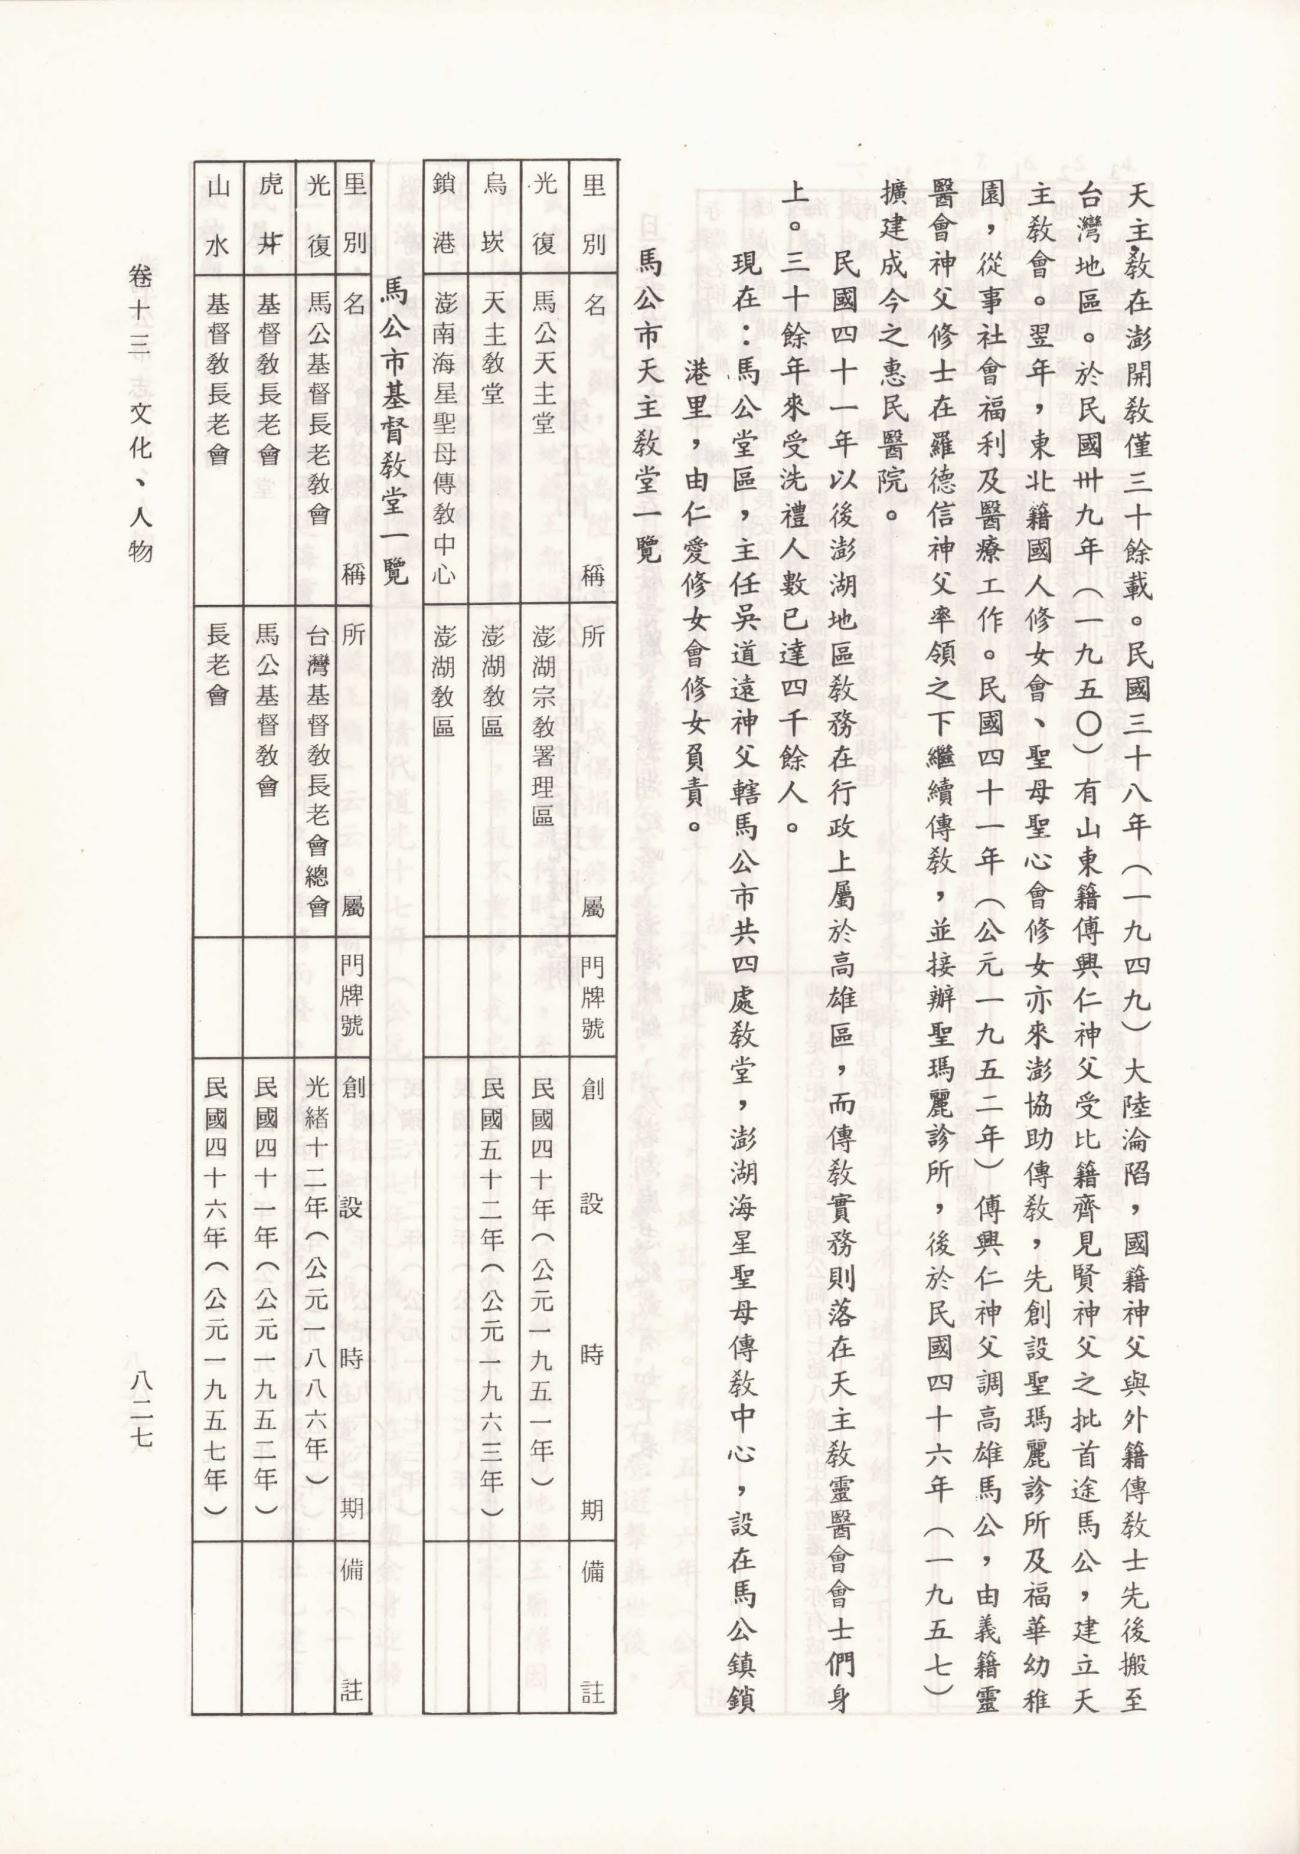 天主敎在澎開敎僅三十餘載。民國三十八年（一九四九）大陸淪陷，國籍神父與外籍傳敎士先後搬至
台灣地區。於民國卅九年（一九五〇）有山東籍傅興仁神父受比籍齊見賢神父之批首途馬公，建立天
主敎會。翌年，東北籍國人修女會、聖母聖心會修女亦來澎協助傳敎，先創設聖瑪麗診所及福華幼稚
園，從事社會福利及醫療工作。民國四十一年（公元一九五二年）傅興仁神父調高雄馬公，由義籍靈
醫會神父修士在羅德信神父率領之下繼續傳敎，並接辦聖瑪麗診所，後於民國四十六年（一九五七）
擴建成今之惠民醫院。
民國四十一年以後澎湖地區敎務在行政上屬於高雄區，而傳敎實務則落在天主敎靈醫會會士們身
上。三十餘年來受洗禮人數已達四千餘人。
現在：馬公堂區，主任吳道遠神父轄馬公市共四處敎堂，澎湖海星聖母傳敎中心，設在馬公鎮鎖
港里，由仁愛修女會修女負責。
馬公市天主敎堂一覽
里別 名稱 所屬 門牌號 創設時期 備註
光復 馬公天主堂 澎湖宗敎署理區 民國四十年（公元一九五一年）
烏崁 天主敎堂 澎湖敎區 民國五十二年（公元一九六三年）
鎖港 澎南海星聖母傳敎中心 澎湖敎區
馬公市基督敎堂一覽
里別 名稱 所屬 門牌號 創設時期 備註
光復 馬公基督長老敎會 台灣基督敎長老會總會 光緒十二年（公元一八八六年）
虎井 基督敎長老會 馬公基督敎會 民國四十一年（公元一九五二年）
山水 基督敎長老會 長老會 民國四十六年（公元一九五七年）
卷十三 文化、人物
八二七